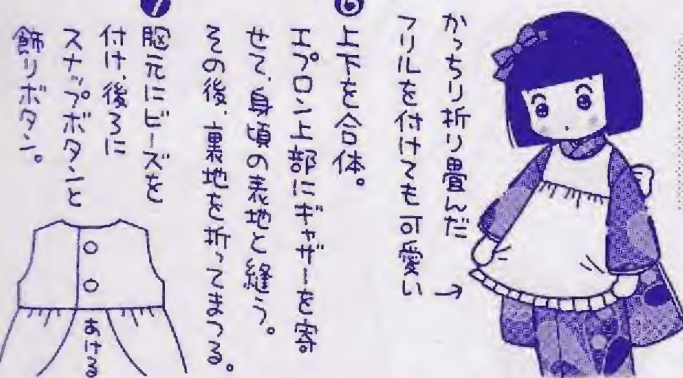 かっちり折り畳んだ
フリルを付けても可愛い→
❻
上下を合体。
エプロン上部にギャザーを寄
せて、身頃の表地と縫う。
その後、裏地を折ってまつる。
❼
胸元にビーズを
付け、後ろに
スナップボタンと
飾りボタン。
あける